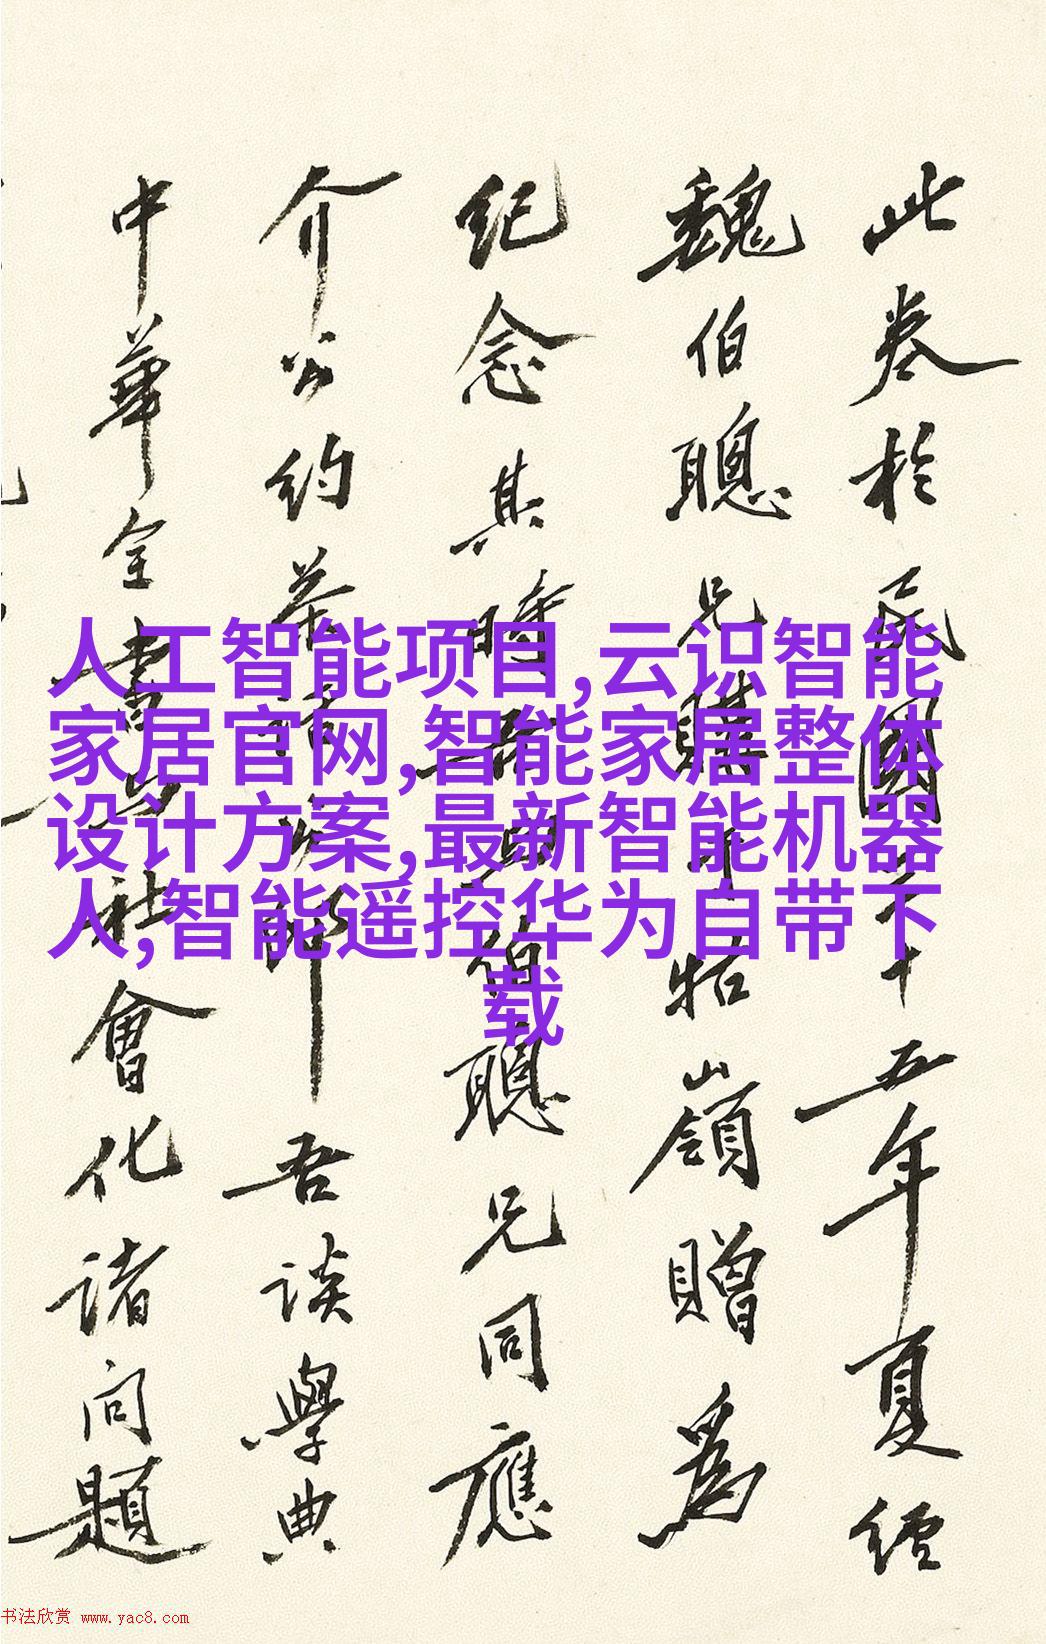 此卷於民國十五年夏經
魏伯聰兄購于牯嶺贈爲
紀念其時伯聰兄同應
介公約茶話吾談學典
中華全書社會化諸問題
人工智能项目,云识智能
家居官网,智能家居整体
设计方案,最新智能机器
人,智能遥控华为自带下
载
书法欣赏 www.yac8.com